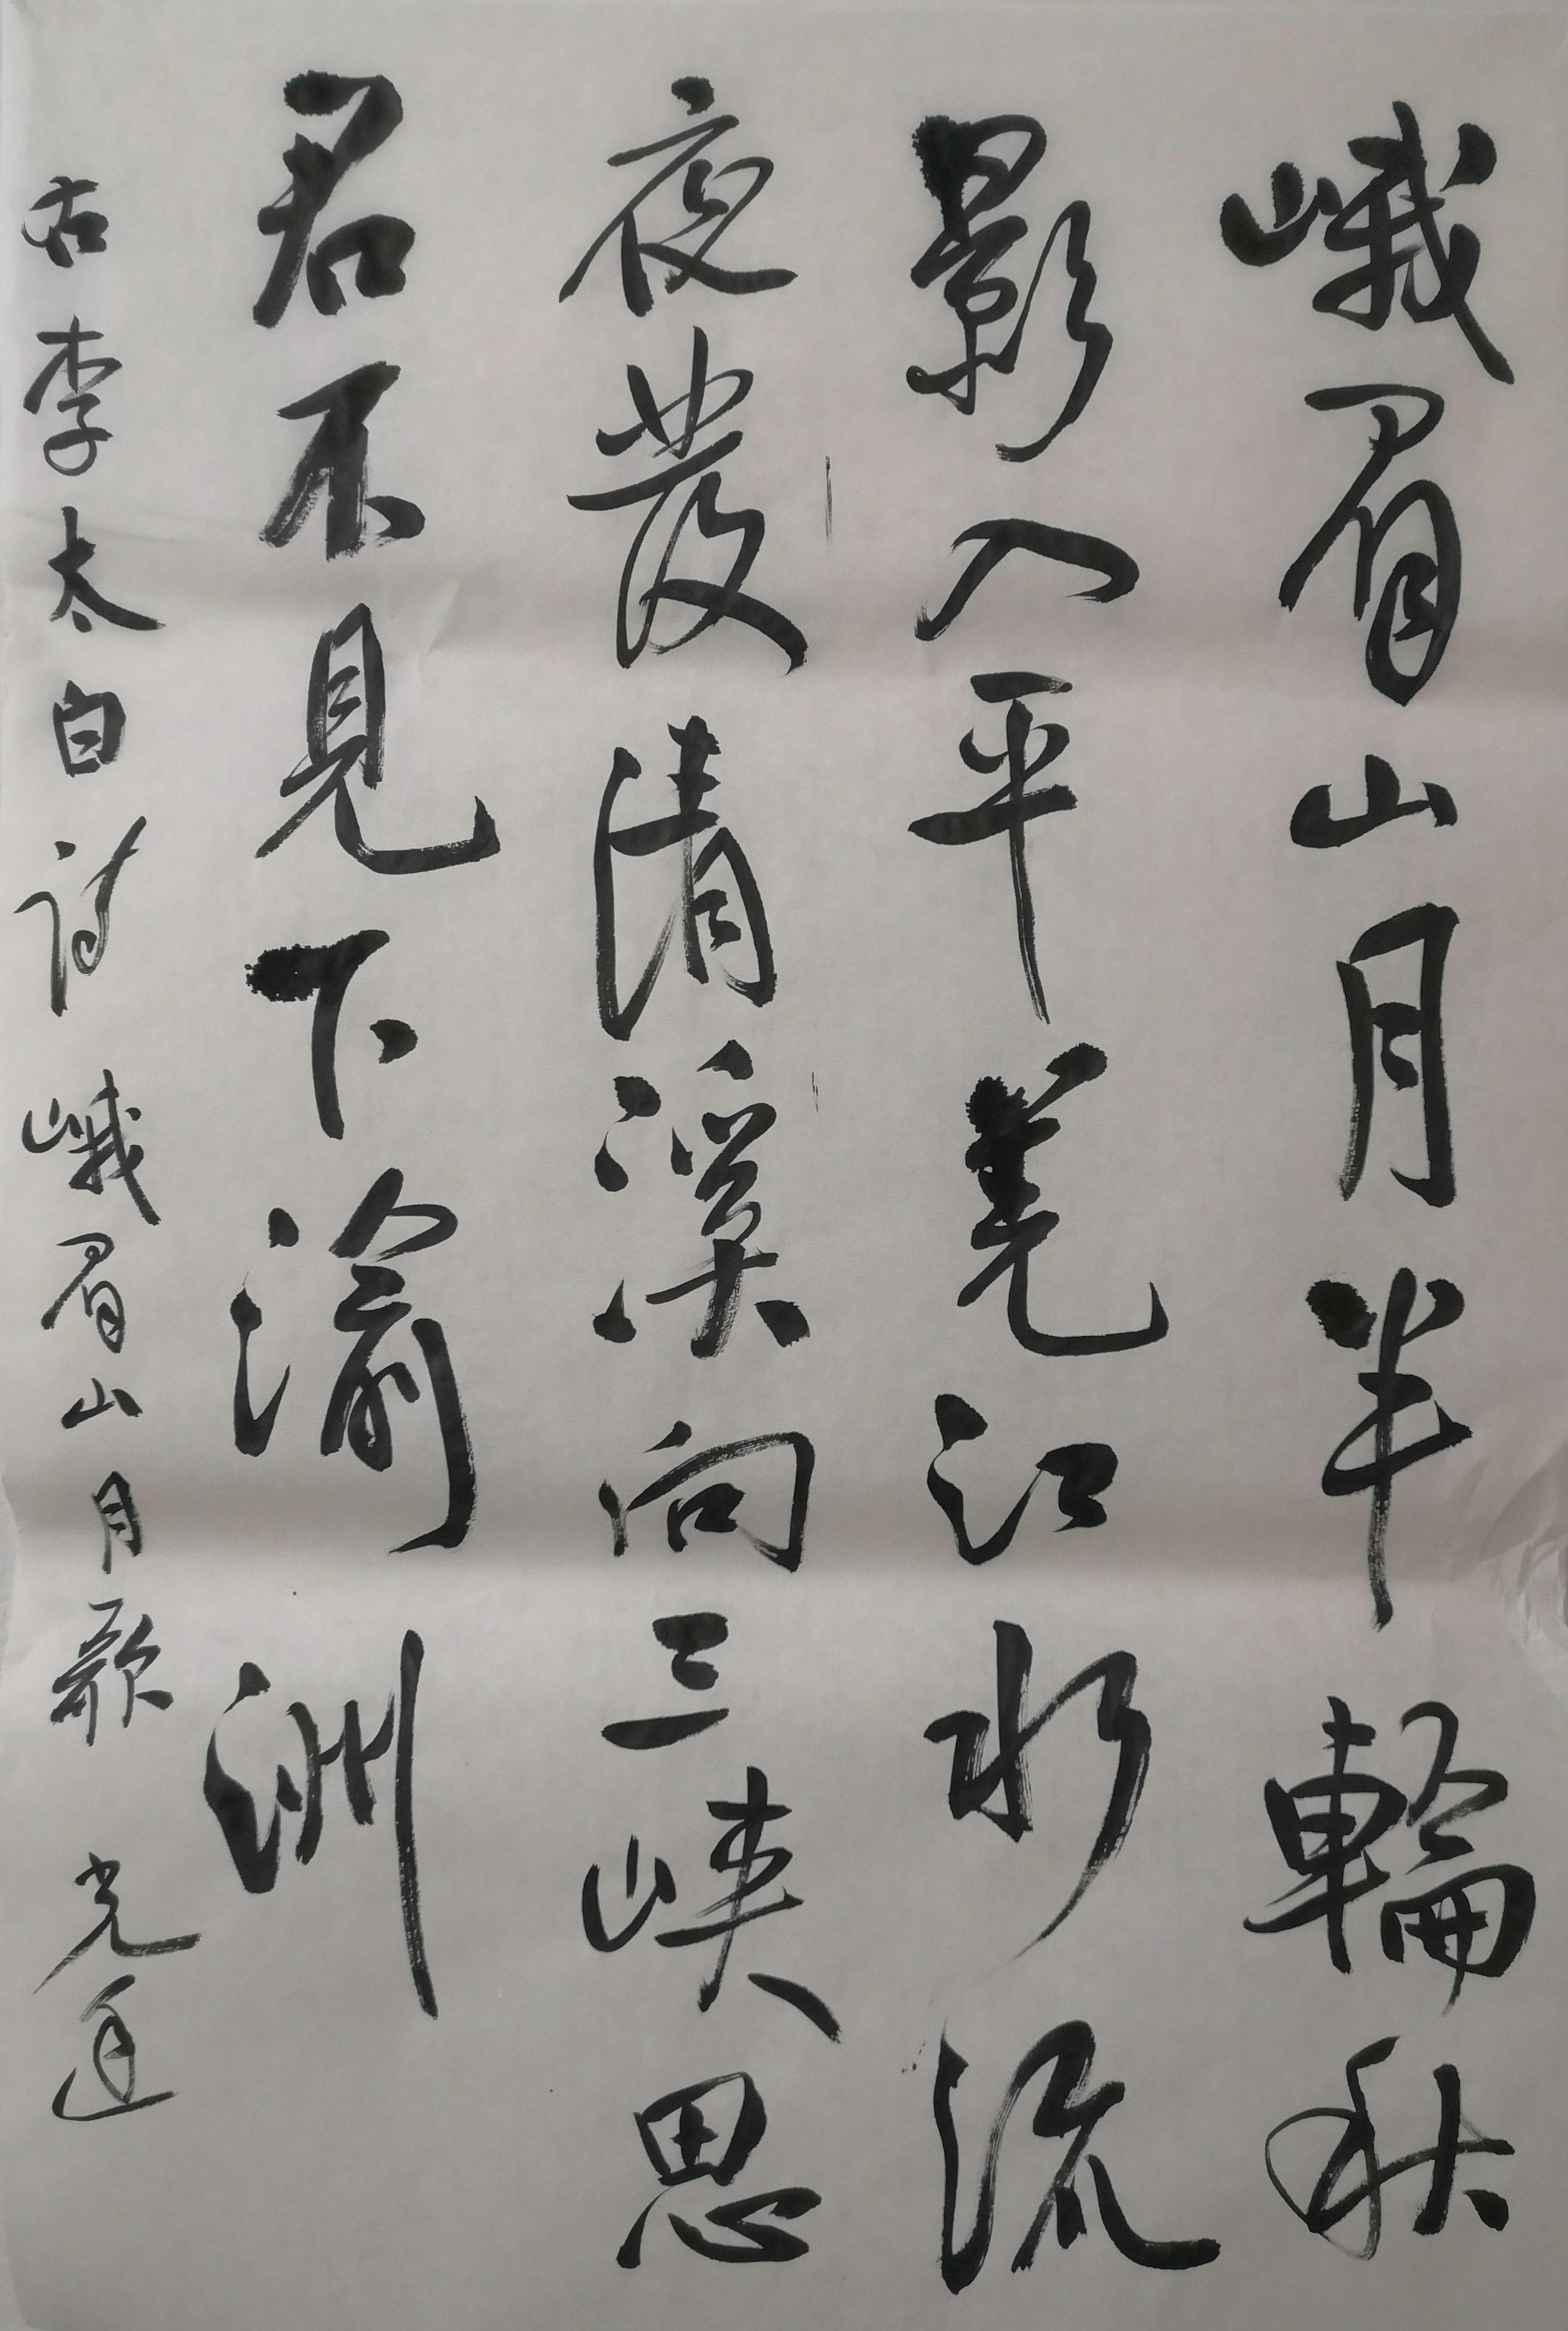 峨眉山月半輪秋
影入平羌江水流
夜發清溪向三峽思
君不見下渝洲
右李太白詩峨眉山月歌 光廷